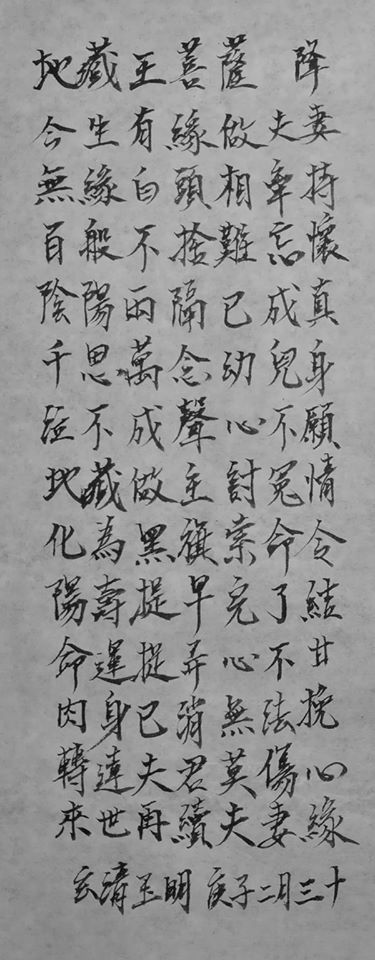 地藏王菩薩 降
今生有緣做夫妻
無緣白頭相牽持
百般不捨難忘懷
陰陽兩隔已成真
千思萬念幼兒身
泣不成聲心不願
地藏做主討冤情
化為黑旗索命令
陽壽提早完了結
命運捉弄心不甘
肉身已消無法挽
轉達夫君莫傷心
來世再續夫妻緣
玄清玉明 庚子二月三十